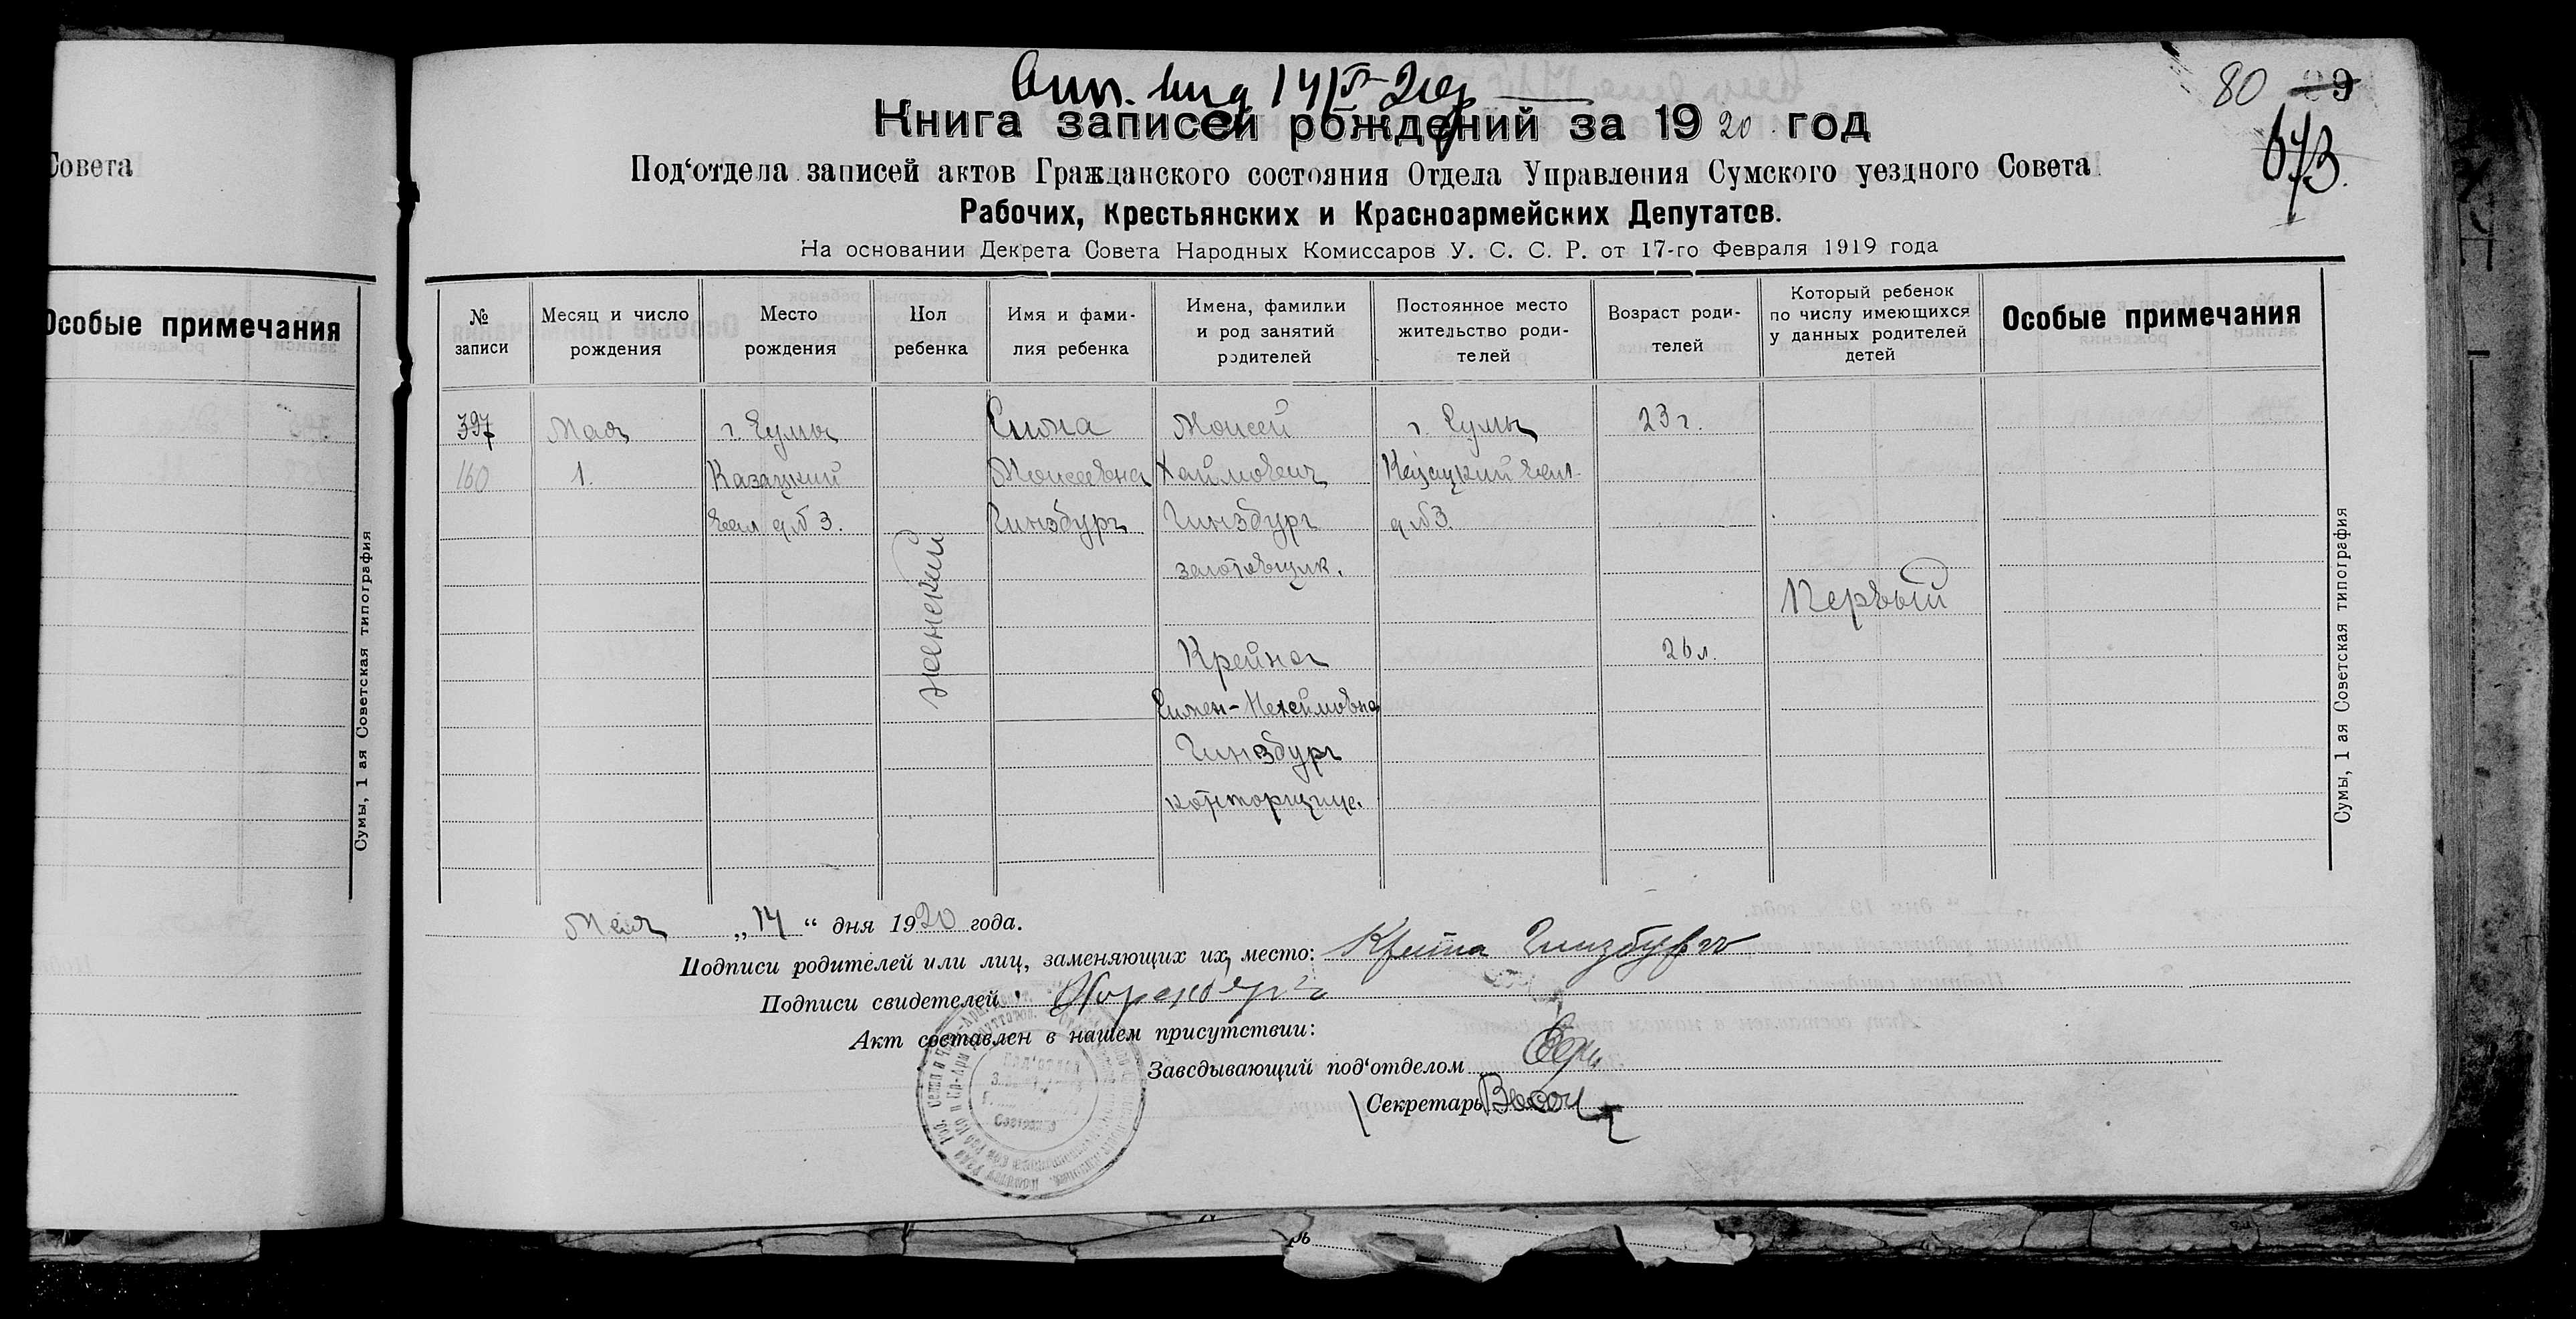 Совета
Особые примечания
Сумы, 1 ая Советская типография
80
Книга записей рождений за 1920 год
Под‘отдела записей актов Гражданского состояния Отдела Управления Сумского уездного Совета
Рабочих, Крестьянских и Красноармейских Депутатов.
На основании Декрета Совета Народных Комиссаров У. С. С. Р. от 17-го Февраля 1919 года
№ записи
Месяц и число рождения
Место рождения
Пол ребенка
Имя и фами-
лия ребенка
Имена, фамилии
и род занятий
родителей
Постоянное место
жительство роди-
телей
Возраст роди-
телей
Который ребенок
по числу имеющихся
у данных родителей
детей
Особые примечания
397
160
Мая
1.
г. Сумы
Казацкий
д № 3.
женский
Сима
Моисеевна
Гинзбург
Моисей
Хаимович
Гинзбург
заготовщик.
Крейна
Гинзбург
конторщица.
г. Сумы
Казацкий
д № 3.
23 г.
26 л.
Первый
Сумы, 1 ая Советская типография
Мая „14“ дня 1920 года.
Подписи родителей или лиц, заменяющих их, место: Крейна Гинзбург
Подписи свидетелей:
Акт составлен в нашем присутствии:
Заведывающий под‘отделом
Секретарь